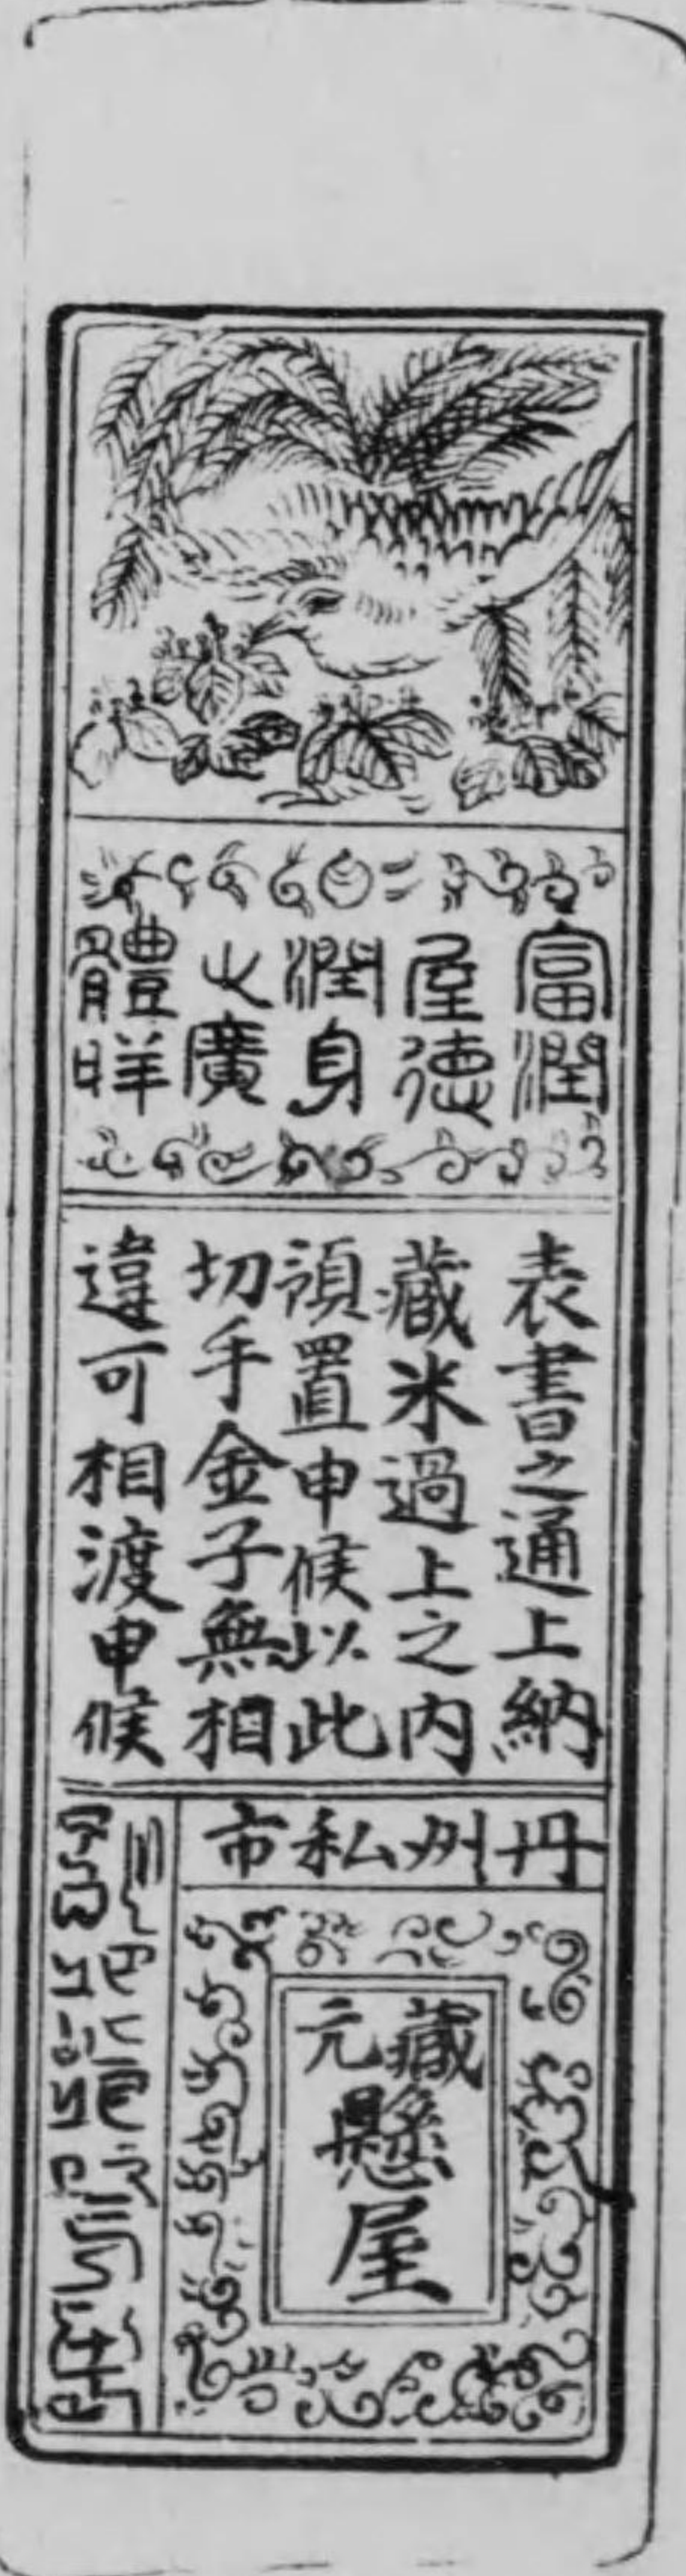 富潤
屋德
潤身
心廣
體胖
表書之通上納
藏米過上之内
預置申候以此
切手金子無相
違可相渡申候
丹州私市
藏元
懸屋